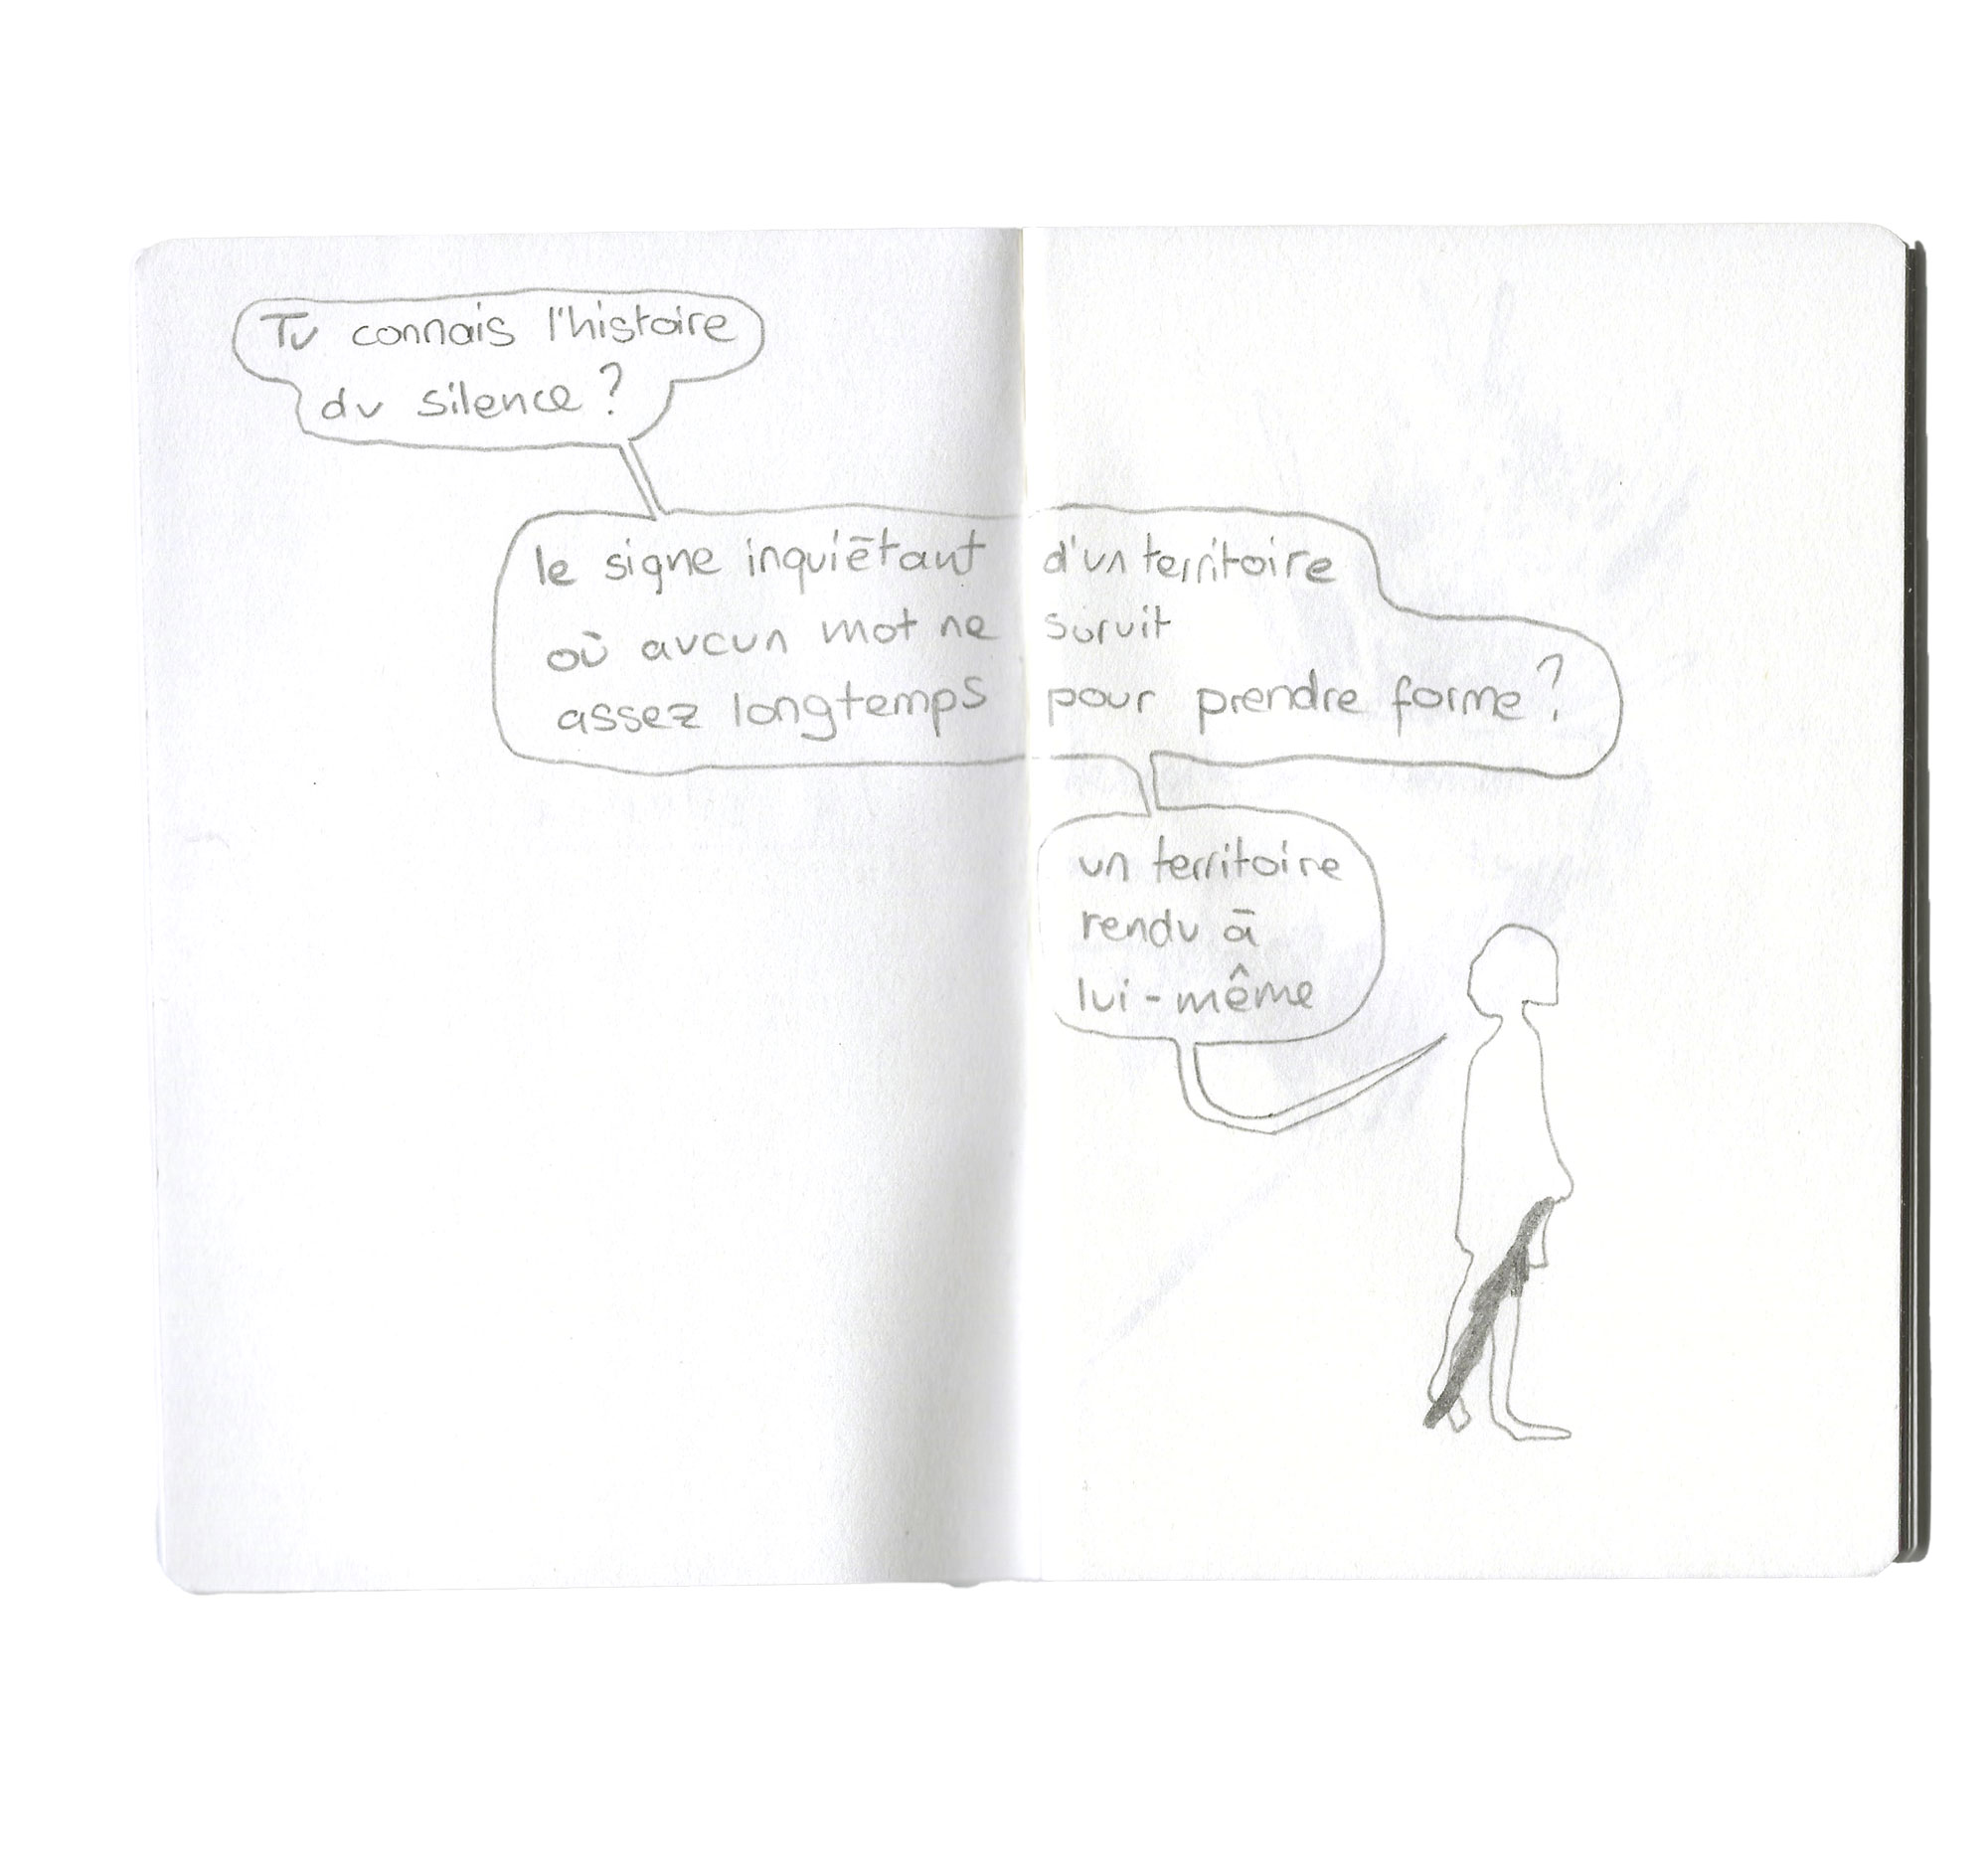 Tu connais l'histoire
du silence ?
le signe inquiētant d'un territoire
où aucun mot ne survit
assez longtemps pour prendre forme ?
un territoire
rendu ā
lui-même